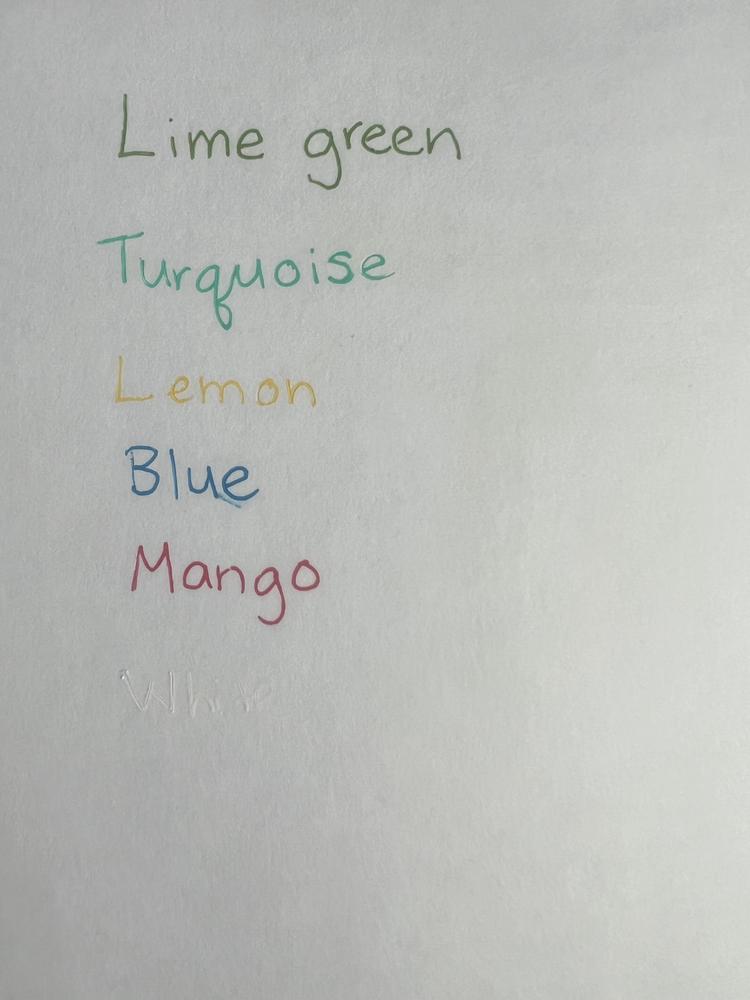 Lime green
Turquoise
Lemon
Blue
Mango
White